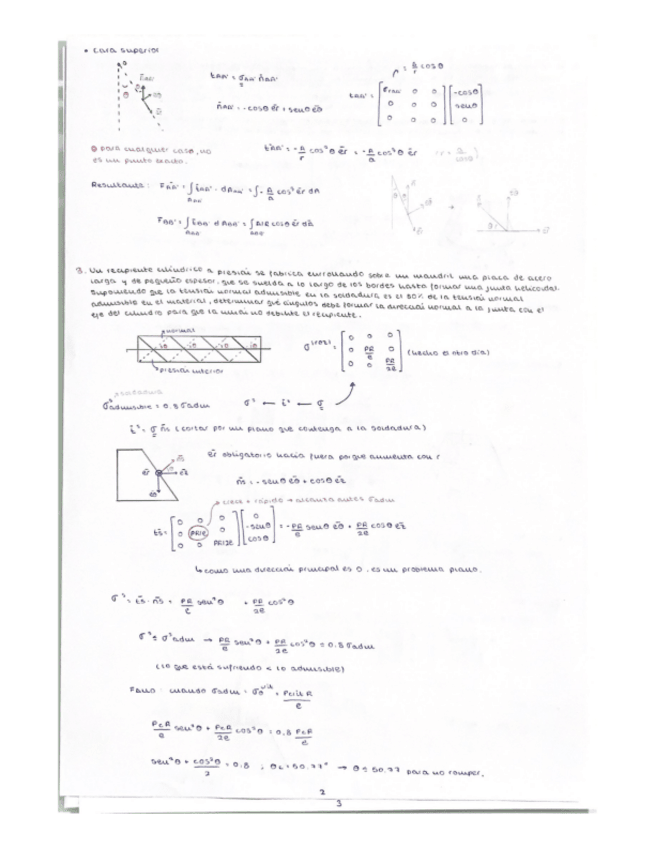 • Cara superior
t_AA' = σ_AA' n_AA'
n_AA' = -cosθ er + senθ eθ
t_AA' = [σrr 0 0; 0 0 0; 0 0 0] [-cosθ; senθ; 0]
para cualquier caso, no es un punto exacto.
t_AA' = -A/r cos²θ er = -A/a cos³θ er
Resultante: F_AA' = ∫ t_AA' · dA_AA' = ∫ - A/a cos³ er dA
F_BB' = ∫ t_BB' dA_BB' = ∫ A/R cosθ er dA
3. Un recipiente cilíndrico a presión se fabrica enrollando sobre un mandril una placa de acero
larga y de pequeño espesor, que se suelda a lo largo de los bordes hasta formar una junta helicoidal.
Suponiendo que la tensión normal admisible en la soldadura es el 80% de la tensión normal
admisible en el material, determinar qué ángulos debe formar la dirección normal a la junta con el
eje del cilindro para que la unión no debilite el recipiente.
normal
presión interior
σ = [0 0 0; 0 PR/e 0; 0 0 PR/2e] (hecho el otro día)
soldadura
σˢ admisible = 0,8 σadm
σˢ ← tˢ ← σ
tˢ = σ ns (cortar por un plano que contenga a la soldadura)
er obligatorio hacia fuera porque aumenta con r
ns = -senθ eθ + cosθ ez
crece + rápido → alcanza antes σadm
ts = [0 0 0; 0 PR/e 0; 0 0 PR/2e] [0; -senθ; cosθ] = -PR/e senθ eθ + PR/2e cosθ ez
↳ como una dirección principal es 0, es un problema plano.
σˢ = ts · ns = PR/e sen²θ + PR/2e cos²θ
σˢ ≤ σˢadm → PR/e sen²θ + PR/2e cos²θ ≤ 0,8 σadm
(lo que está sufriendo < lo admisible)
Fallo: cuando σadm = σθ crit = Pcrit R/e
PcR/e sen²θ + PcR/2e cos²θ = 0,8 PcR/e
sen²θ + cos²θ/2 = 0,8 ; θc = 50,77° → θ ≤ 50,77 para no romper.
2
3